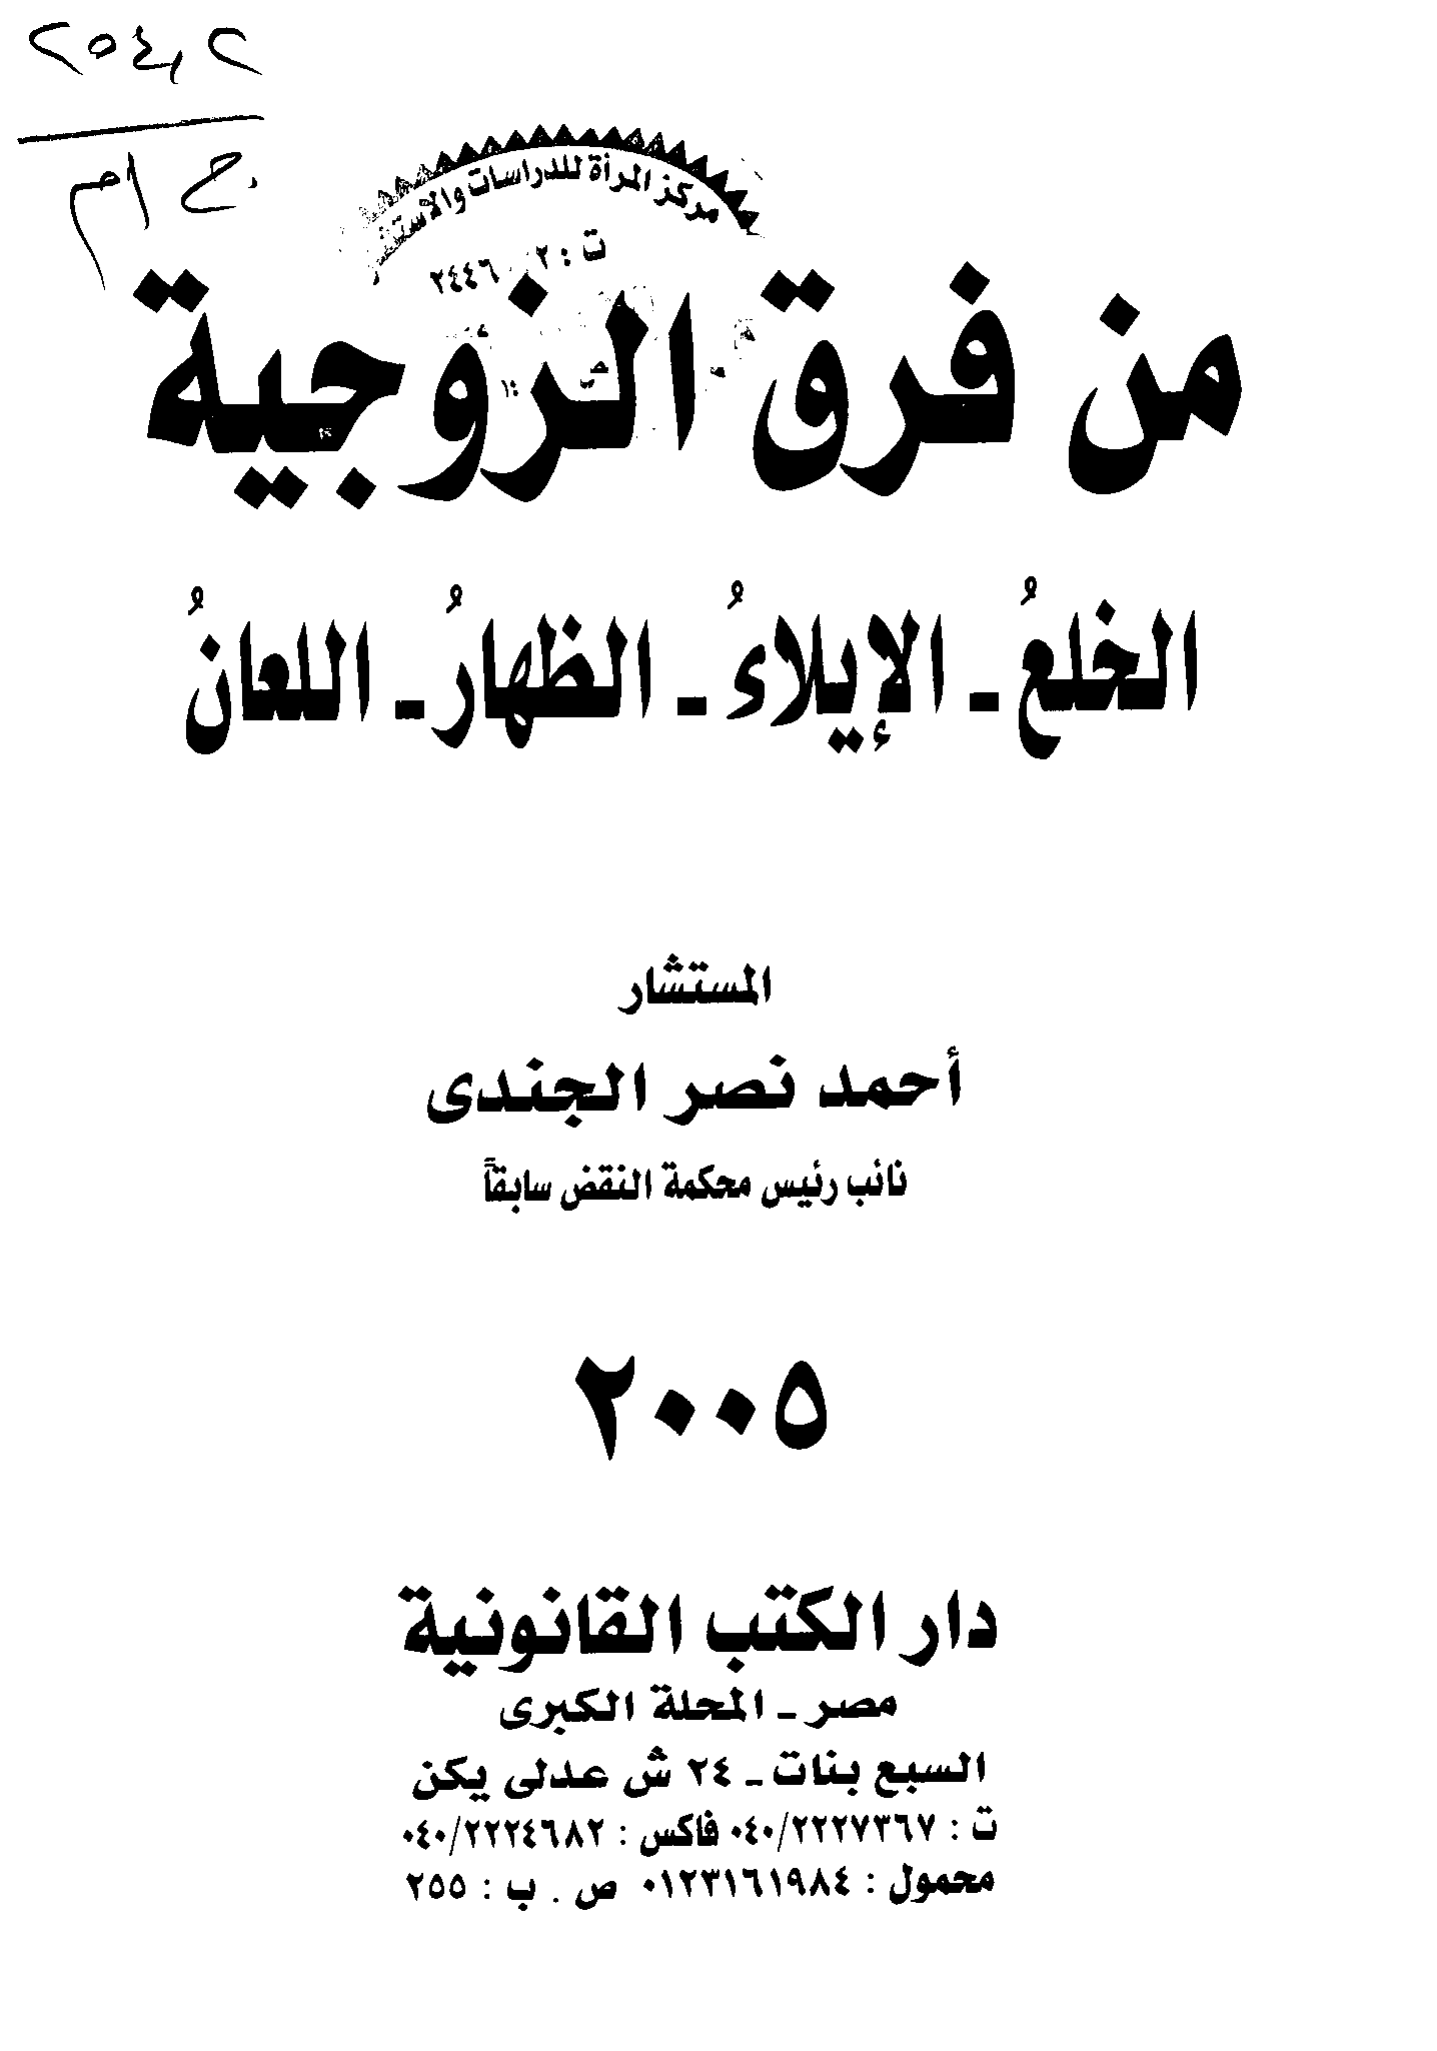 ٢٥٤,٢
ج ام
مركز المرأة للدراسات
ت :
من فرق الزوجية
الخلعُ ـ الإيلاءُ ـ الظهارُ ـ اللعانُ
المستشار
أحمد نصر الجندى
نائب رئيس محكمة النقض سابقاً
٢٠٠٥
دار الكتب القانونية
مصر ـ المحلة الكبرى
السبع بنات ـ ٢٤ ش عدلى يكن
ت : ٠٤٠/٢٢٢٧٣٦٧ فاكس : ٠٤٠/٢٢٢٤٦٨٢
محمول : ٠١٢٣١٦١٩٨٤ ص . ب : ٢٥٥